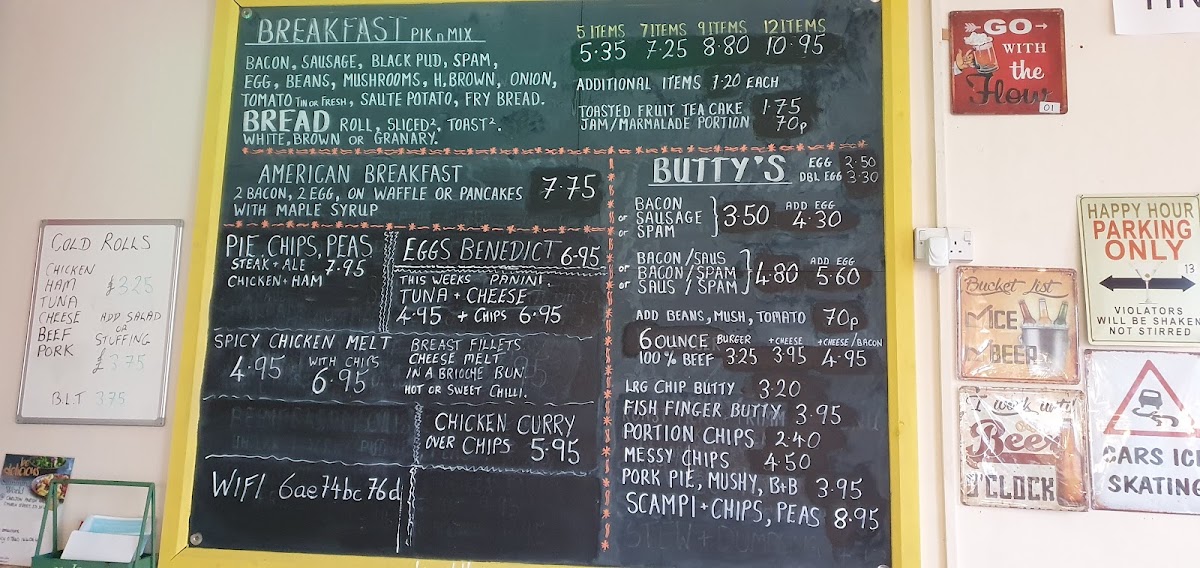 BREAKFAST PIK n MIX
5 ITEMS 7 ITEMS 9 ITEMS 12 ITEMS
5·35 7·25 8·80 10·95
BACON, SAUSAGE, BLACK PUD, SPAM,
EGG, BEANS, MUSHROOMS, H.BROWN, ONION,
TOMATO TIN OR FRESH, SALTE POTATO, FRY BREAD.
BREAD ROLL, SLICED², TOAST².
WHITE, BROWN OR GRANARY.
ADDITIONAL ITEMS 1·20 EACH
TOASTED FRUIT TEA CAKE 1·75
JAM/MARMALADE PORTION 70p
AMERICAN BREAKFAST
2 BACON, 2 EGG, ON WAFFLE OR PANCAKES
WITH MAPLE SYRUP
7·75
PIE, CHIPS, PEAS
STEAK + ALE 7·95
CHICKEN + HAM
EGGS BENEDICT 6·95
THIS WEEKS PANINI.
TUNA + CHEESE
4·95 + CHIPS 6·95
SPICY CHICKEN MELT
4·95 WITH CHIPS
6·95
BREAST FILLETS
CHEESE MELT
IN A BRIOCHE BUN.
HOT OR SWEET CHILLI.
CHICKEN CURRY
OVER CHIPS 5·95
WIFI 6ae74bc76d
BUTTY'S
EGG 2·50
DBL EGG 3·30
BACON
or SAUSAGE
or SPAM
3·50
ADD EGG
4·30
BACON/SAUS
or BACON/SPAM
or SAUS/SPAM
4·80
ADD EGG
5·60
ADD BEANS, MUSH, TOMATO 70p
6 OUNCE BURGER +CHEESE +CHEESE/BACON
100% BEEF 3·25 3·95 4·95
LRG CHIP BUTTY 3·20
FISH FINGER BUTTY 3·95
PORTION CHIPS 2·40
MESSY CHIPS 4·50
PORK PIE, MUSHY, B+B 3·95
SCAMPI + CHIPS, PEAS 8·95
COLD ROLLS
CHICKEN
HAM £3·25
TUNA
CHEESE ADD SALAD
OR
BEEF STUFFING
PORK £3·75
B.L.T 3·75
GO
WITH
the
Flow
01
HAPPY HOUR
PARKING
ONLY
13
VIOLATORS
WILL BE SHAKEN
NOT STIRRED
Bucket list
ICE
BEER
I work until
Beer
O'CLOCK
CARS ICE
SKATING
delicious